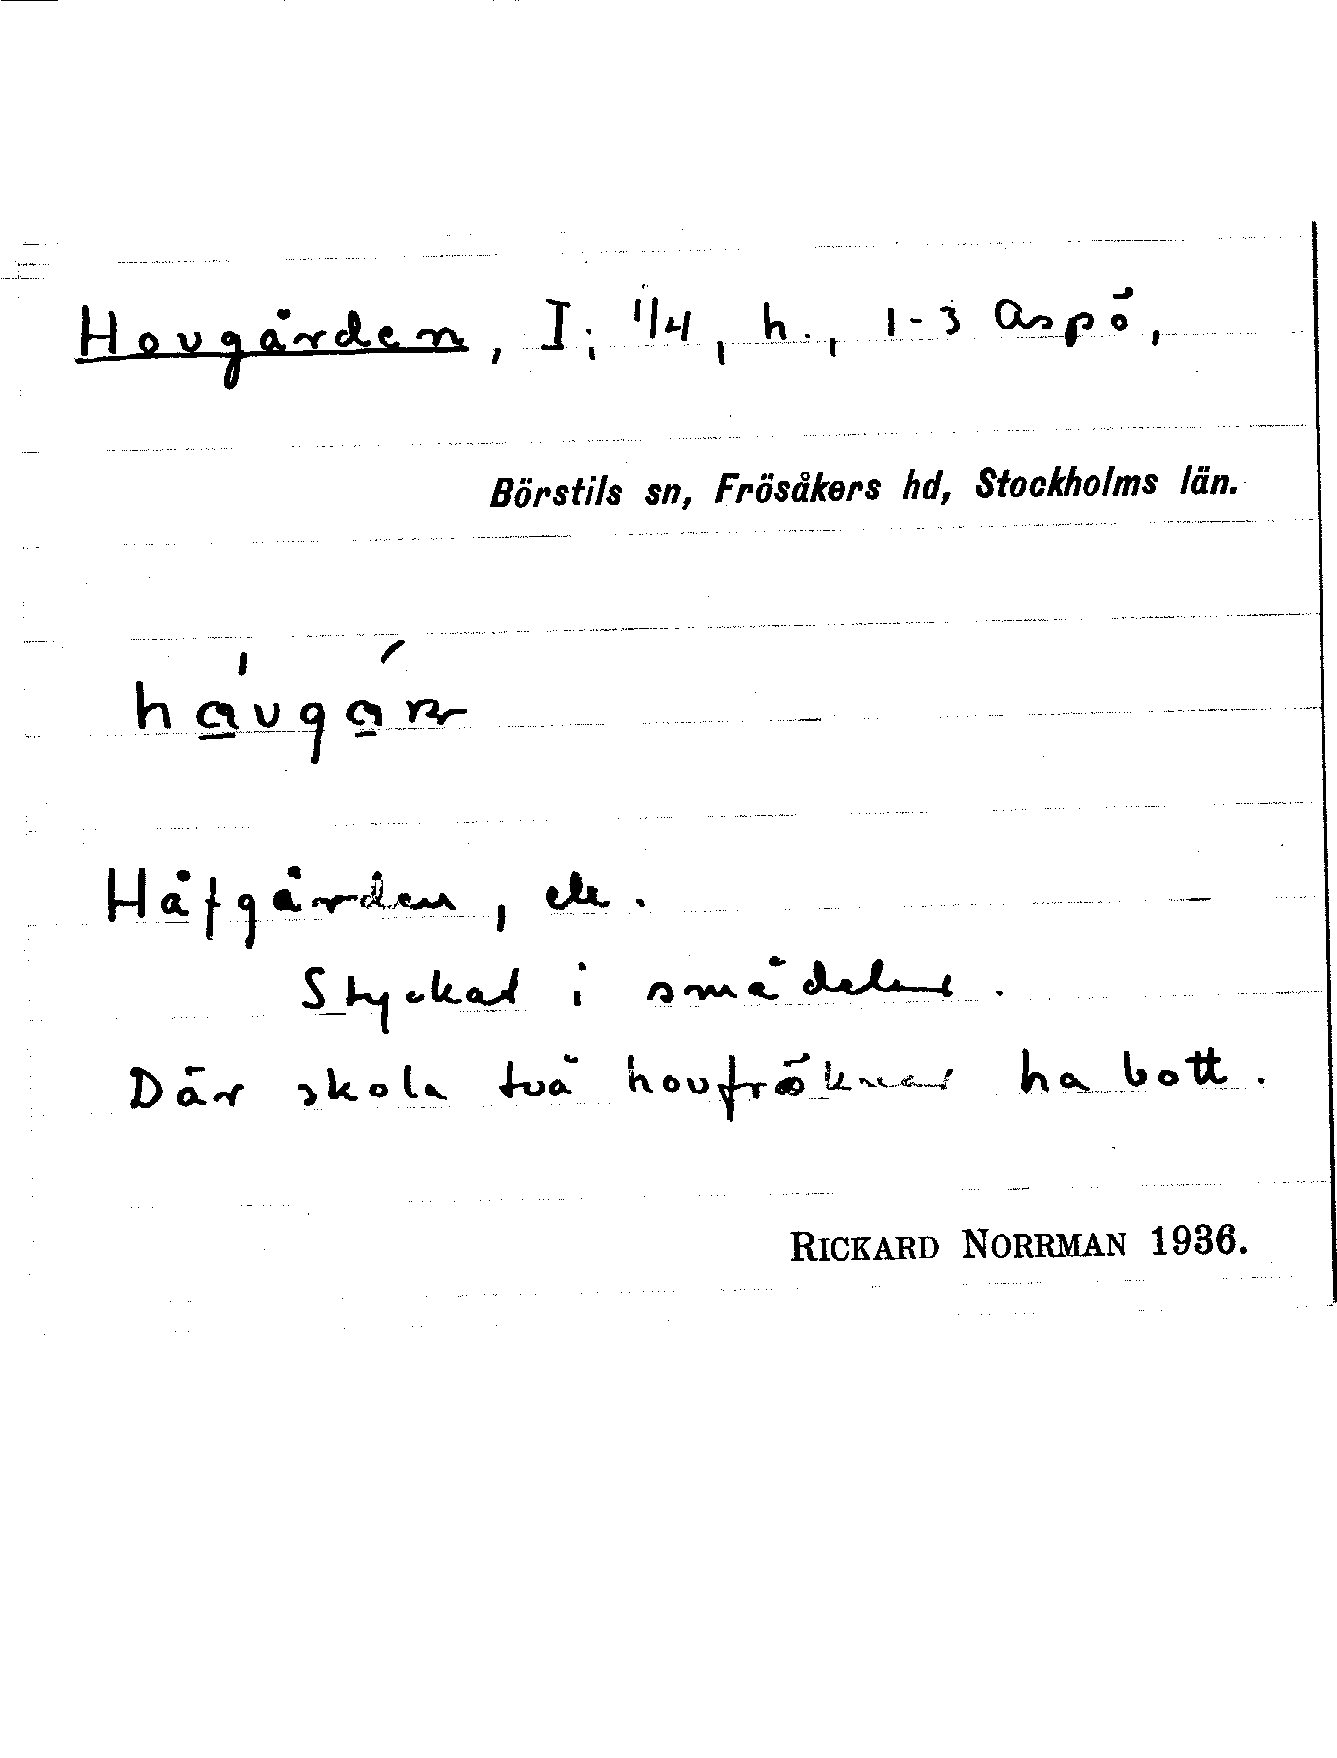 Hovgården, I; 1/4, h., 1-3 Aspö,
Börstils sn, Frösåkers hd, Stockholms län.
Håfgården, ek.
Styckad i smådelar.
Där skola två hovfröknar ha bott.
RICKARD NORRMAN 1936.